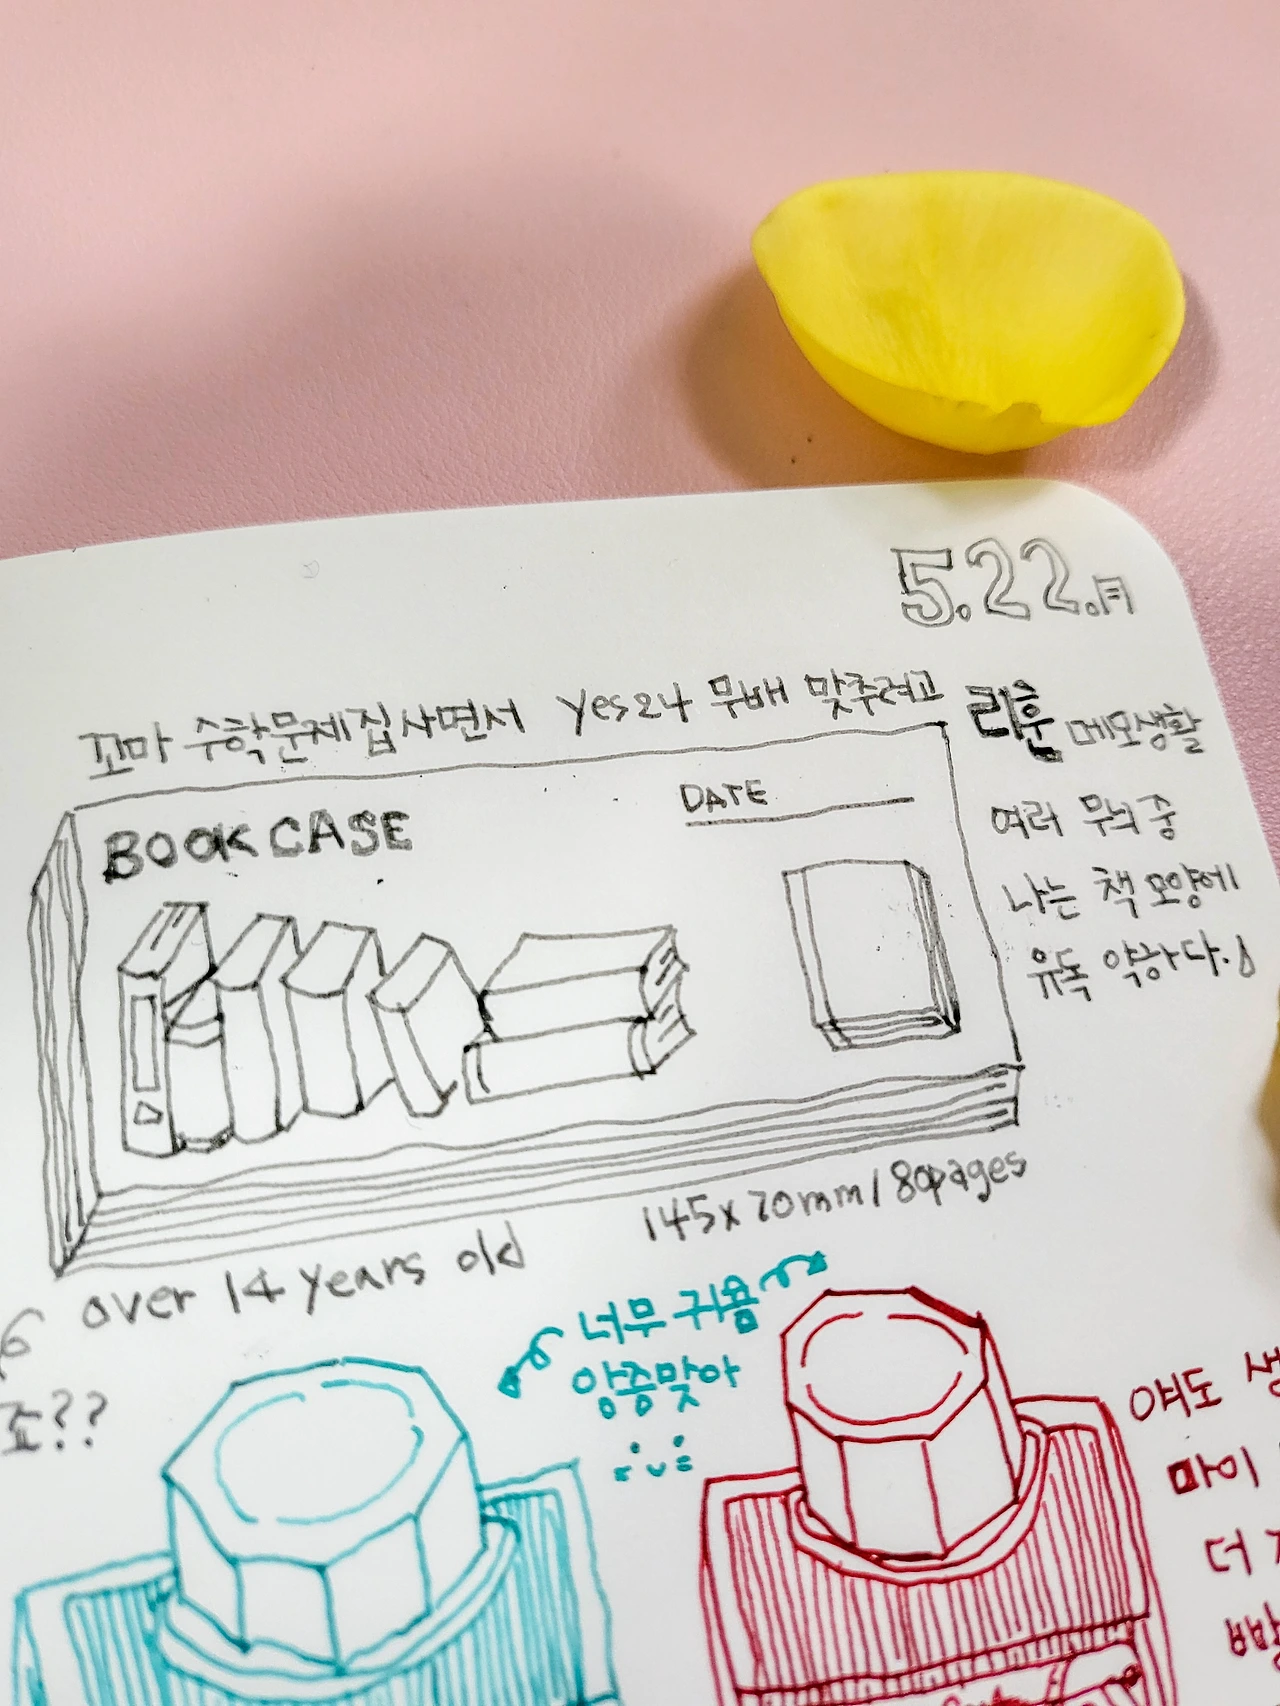 5.22.月
꼬마 수학문제집 사면서 Yes24 무배 맞추려고
리훈 메모생활
여러 무늬 중
나는 책 모양에
유독 약하다.
BOOK CASE
DATE
145x70mm/80pages
over 14 years old
조??
너무 귀욤
앙증맞아
얘도
더